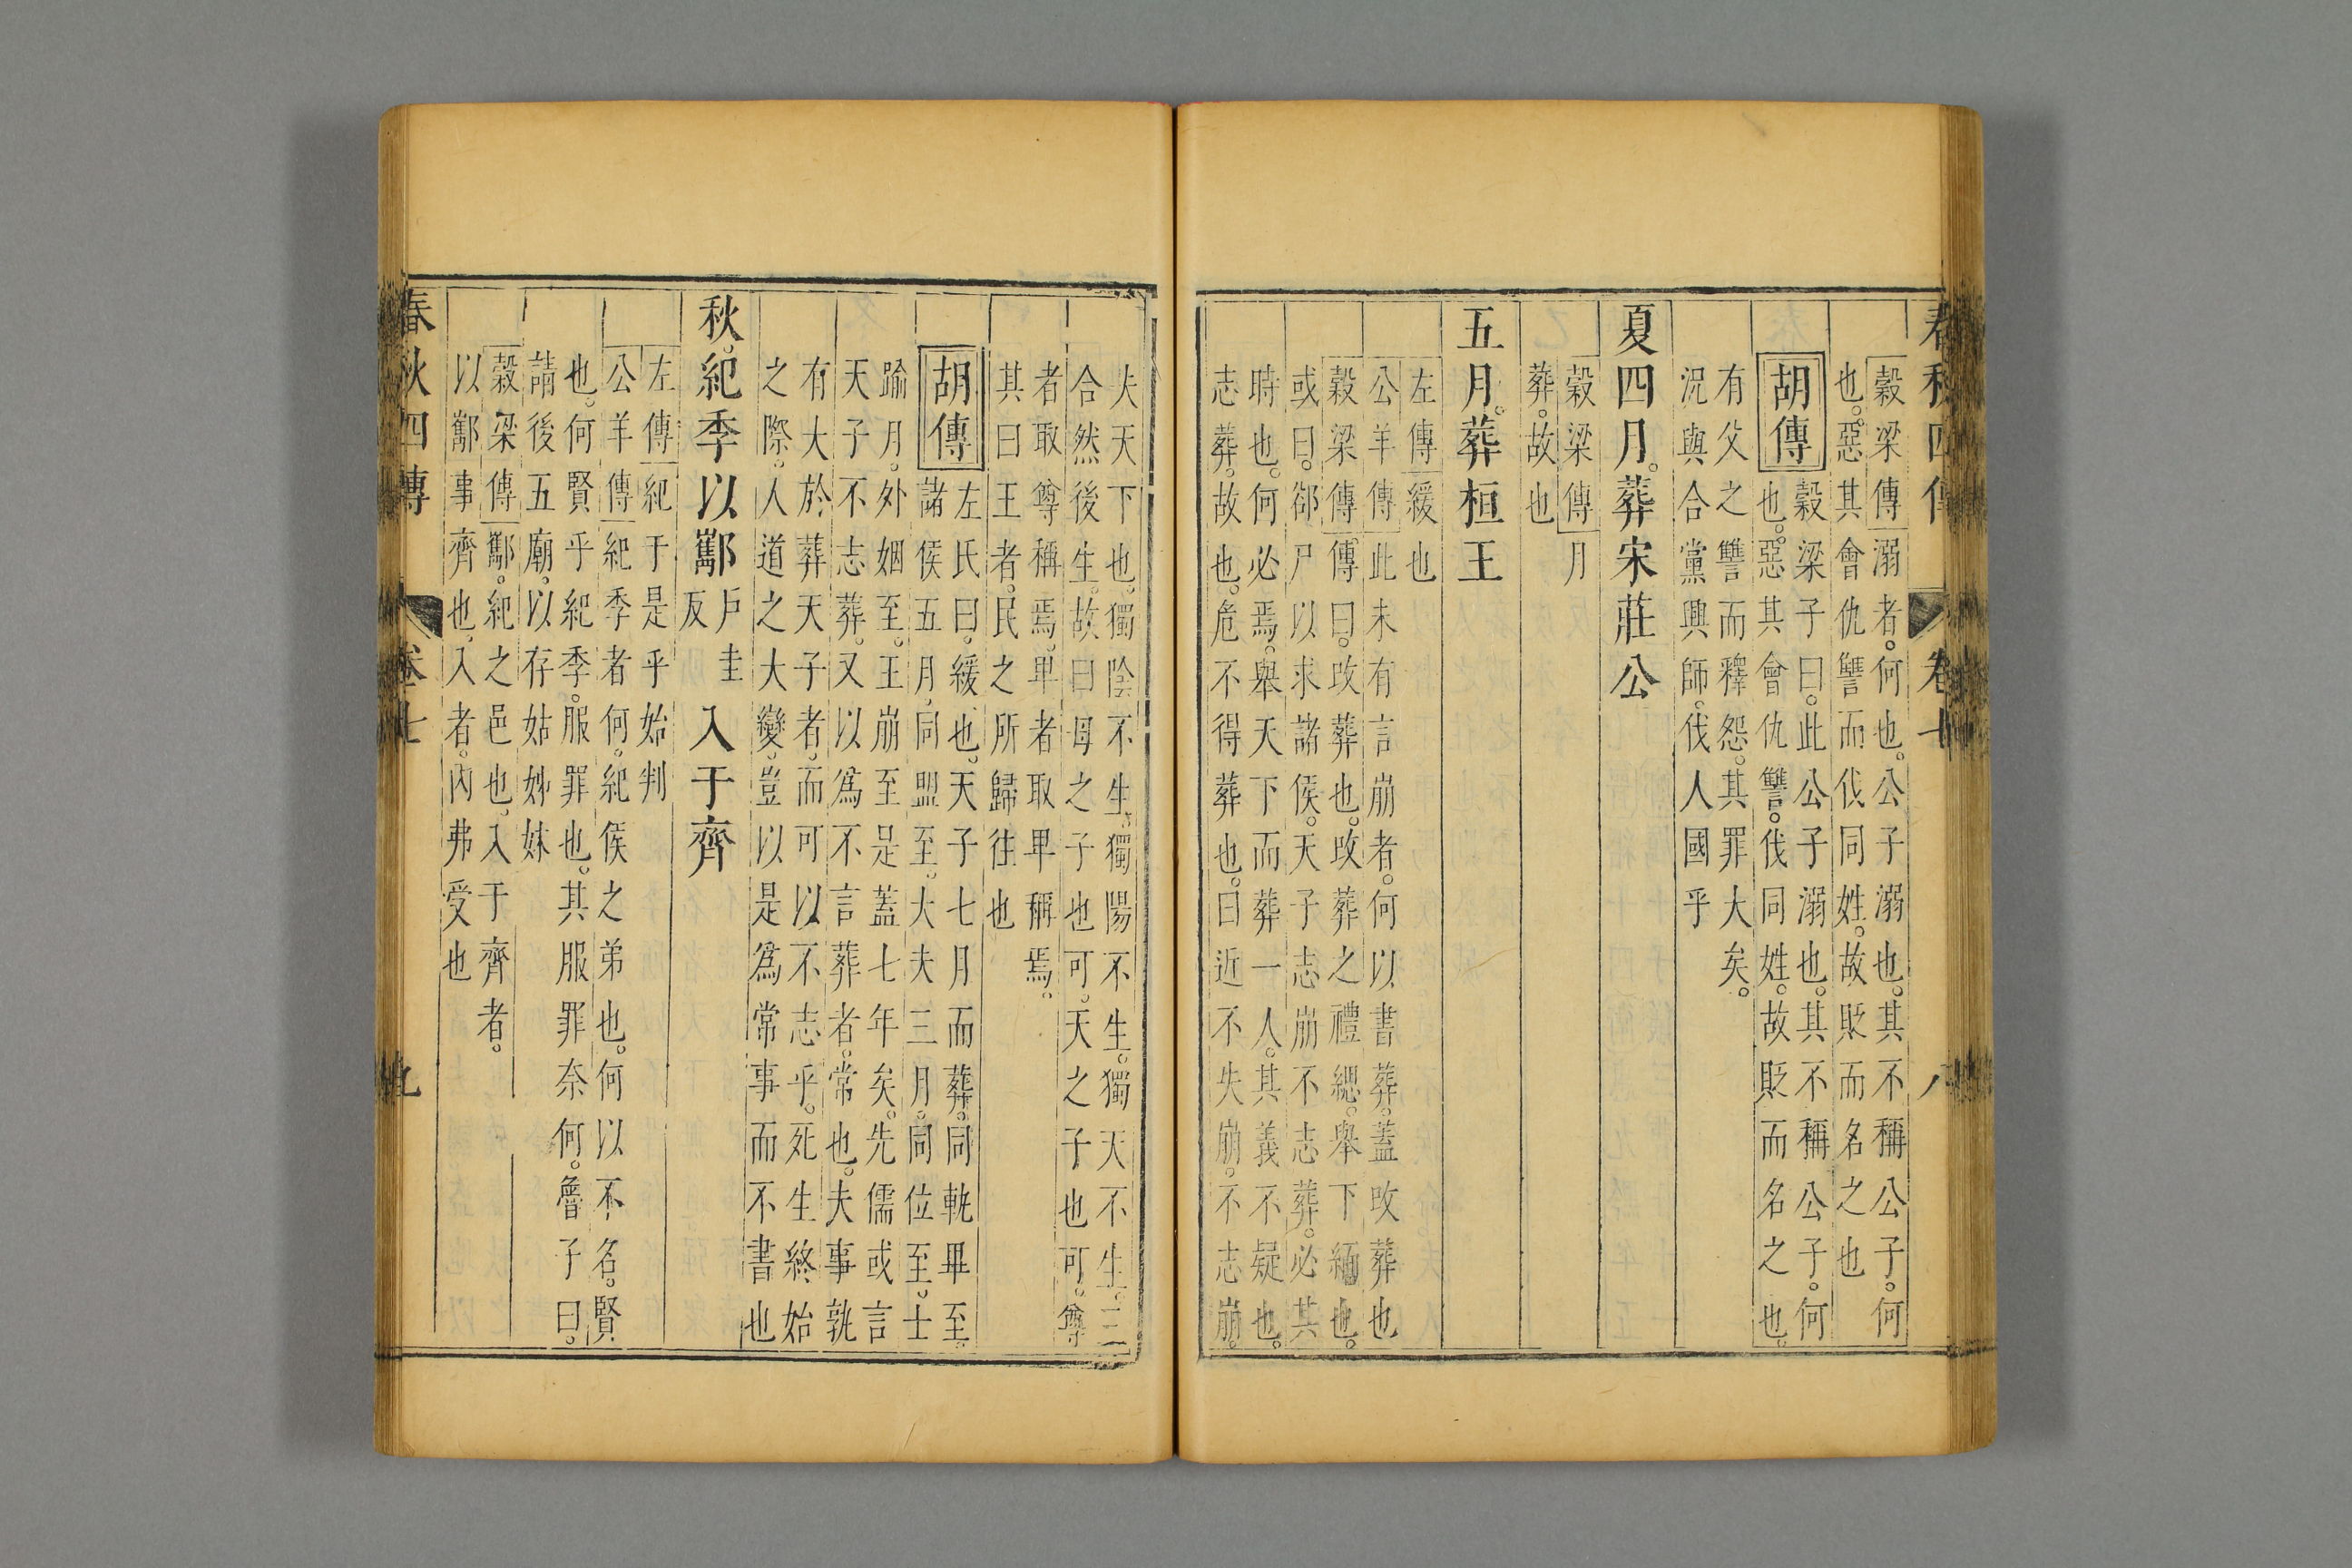 春秋四傳 卷七 八
穀梁傳溺者。何也。公子溺也。其不稱公子。何
也。惡其會仇讐而伐同姓。故貶而名之也
胡傳
穀梁子曰。此公子溺也。其不稱公子。何
也。惡其會仇讐。伐同姓。故貶而名之也。
有父之讐而釋怨。其罪大矣。
況與合黨興師。伐人國乎
夏四月。葬宋莊公
穀梁傳月
葬。故也
五月。葬桓王
左傳緩也
公羊傳此未有言崩者。何以書葬。蓋改葬也
穀梁傳傳曰。改葬也。改葬之禮緦。舉下緬也。
或曰。郤尸以求諸侯。天子志崩不志葬。必其
時也。何必焉。舉天下而葬一人。其義不疑也。
志葬。故也。危不得葬也。曰近不失崩。不志崩。
失天下也。獨陰不生。獨陽不生。獨天不生。三
合然後生。故曰母之子也可。天之子也可。尊
者取尊稱焉。卑者取卑稱焉。
其曰王者。民之所歸往也
胡傳
左氏曰。緩也。天子七月而葬。同軌畢至。
諸侯五月。同盟至。大夫三月。同位至。士
踰月。外姻至。王崩至是蓋七年矣。先儒或言
天子不志葬。又以為不言葬者。常也。夫事孰
有大於葬天子者。而可以不志乎。死生終始
之際。人道之大變。豈以是為常事而不書也
秋。紀季以酅戶圭反入于齊
左傳紀于是乎始判
公羊傳紀季者何。紀侯之弟也。何以不名。賢
也。何賢乎紀季。服罪也。其服罪奈何。魯子曰。
請後五廟。以存姑姊妹
穀梁傳酅。紀之邑也。入于齊者。
以酅事齊也。入者。內弗受也
春秋四傳 卷七 九